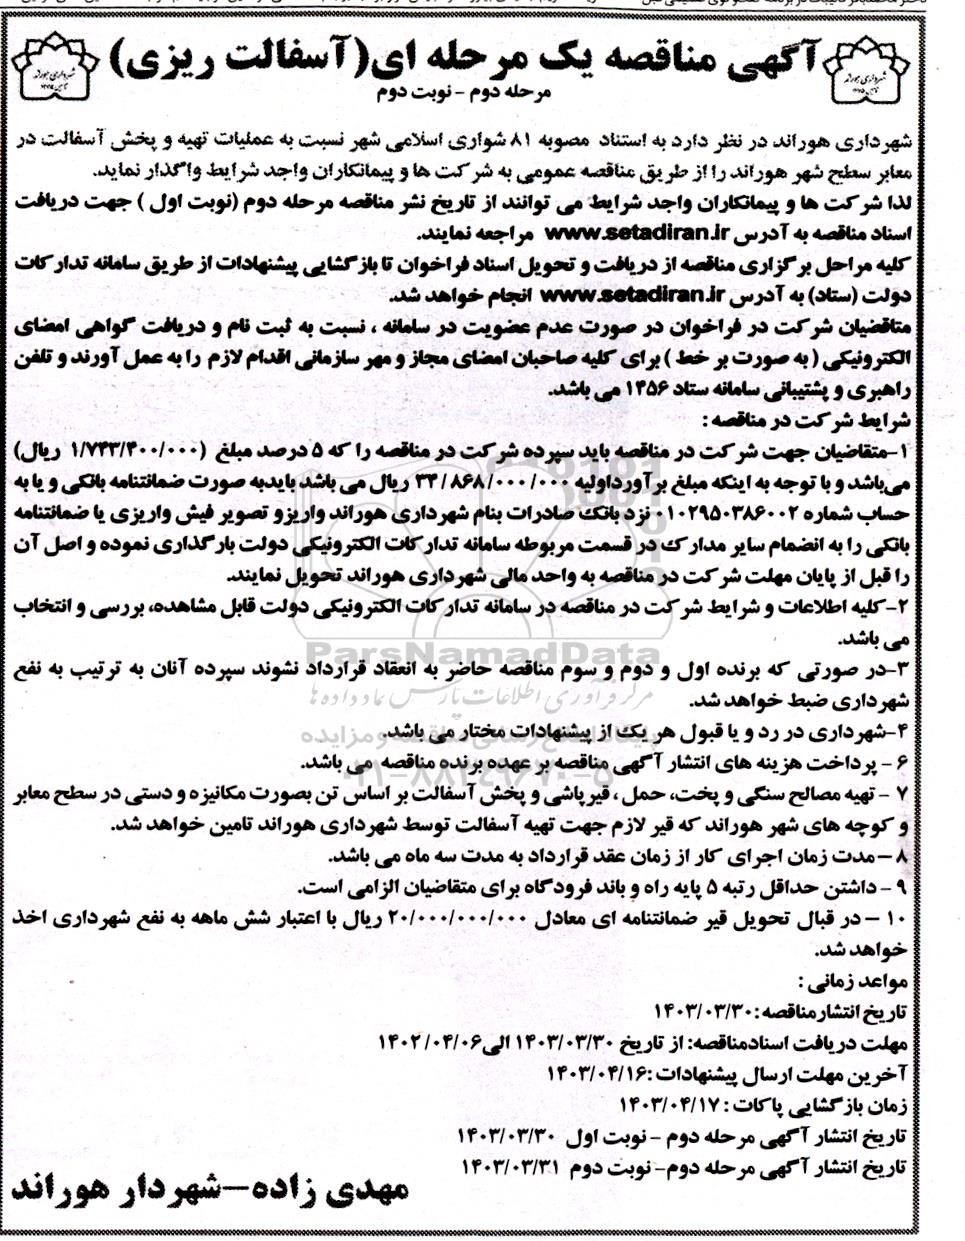 آگهی مناقصه یک مرحله ای(آسفالت ریزی)
مرحله دوم - نوبت دوم
شهرداری هوراند در نظر دارد به استناد مصوبه ۸۱ شواری اسلامی شهر نسبت به عملیات تهیه و پخش آسفالت در
معابر سطح شهر هوراند را از طریق مناقصه عمومی به شرکت ها و پیمانکاران واجد شرایط واگذار نماید.
لذا شرکت ها و پیمانکاران واجد شرایط می توانند از تاریخ نشر مناقصه مرحله دوم (نوبت اول ) جهت دریافت
اسناد مناقصه به آدرس www.setadiran.ir مراجعه نمایند.
کلیه مراحل برگزاری مناقصه از دریافت و تحویل اسناد فراخوان تا بازگشایی پیشنهادات از طریق سامانه تدارکات
دولت (ستاد) به آدرس www.setadiran.ir انجام خواهد شد.
متاقضیان شرکت در فراخوان در صورت عدم عضویت در سامانه ، نسبت به ثبت نام و دریافت گواهی امضای
الکترونیکی ( به صورت بر خط ) برای کلیه صاحبان امضای مجاز و مهر سازمانی اقدام لازم را به عمل آورند و تلفن
راهبری و پشتیبانی سامانه ستاد ۱۴۵۶ می باشد.
شرایط شرکت در مناقصه :
۱-متقاضیان جهت شرکت در مناقصه باید سپرده شرکت در مناقصه را که ۵ درصد مبلغ (۱/۷۴۳/۴۰۰/۰۰۰ ریال)
می‌باشد و با توجه به اینکه مبلغ برآورداولیه ۳۴/۸۶۸/۰۰۰/۰۰۰ ریال می باشد بایدبه صورت ضمانتنامه بانکی و یا به
حساب شماره ۰۱۰۲۹۵۰۳۸۶۰۰۲ نزد بانک صادرات بنام شهرداری هوراند واریزو تصویر فیش واریزی یا ضمانتنامه
بانکی را به انضمام سایر مدارک در قسمت مربوطه سامانه تدارکات الکترونیکی دولت بارگذاری نموده و اصل آن
را قبل از پایان مهلت شرکت در مناقصه به واحد مالی شهرداری هوراند تحویل نمایند.
۲-کلیه اطلاعات و شرایط شرکت در مناقصه در سامانه تدارکات الکترونیکی دولت قابل مشاهده، بررسی و انتخاب
می باشد.
ParsNamadData
۳-در صورتی که برنده اول و دوم و سوم مناقصه حاضر به انعقاد قرارداد نشوند سپرده آنان به ترتیب به نفع
مرکز فرآوری اطلاعات پارس نماد داده ها
شهرداری ضبط خواهد شد.
۴-شهرداری در رد و یا قبول هر یک از پیشنهادات مختار می باشد.
۶ - پرداخت هزینه های انتشار آگهی مناقصه بر عهده برنده مناقصه می باشد.
۷ - تهیه مصالح سنگی و پخت، حمل ، قیرپاشی و پخش آسفالت بر اساس تن بصورت مکانیزه و دستی در سطح معابر
و کوچه های شهر هوراند که قیر لازم جهت تهیه آسفالت توسط شهرداری هوراند تامین خواهد شد.
۸ -مدت زمان اجرای کار از زمان عقد قرارداد به مدت سه ماه می باشد.
۹ - داشتن حداقل رتبه ۵ پایه راه و باند فرودگاه برای متقاضیان الزامی است.
۱۰ - در قبال تحویل قیر ضمانتنامه ای معادل ۲۰/۰۰۰/۰۰۰/۰۰۰ ریال با اعتبار شش ماهه به نفع شهرداری اخذ
خواهد شد.
مواعد زمانی :
تاریخ انتشارمناقصه:۱۴۰۳/۰۳/۳۰
مهلت دریافت اسنادمناقصه: از تاریخ ۱۴۰۳/۰۳/۳۰ الی ۱۴۰۲/۰۴/۰۶
آخرین مهلت ارسال پیشنهادات :۱۴۰۳/۰۴/۱۶
زمان بازگشایی پاکات : ۱۴۰۳/۰۴/۱۷
تاریخ انتشار آگهی مرحله دوم - نوبت اول ۱۴۰۳/۰۳/۳۰
تاریخ انتشار آگهی مرحله دوم- نوبت دوم ۱۴۰۳/۰۳/۳۱
مهدی زاده-شهردار هوراند